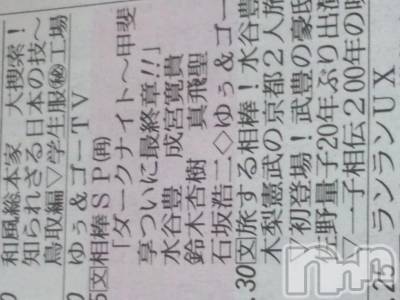 0 和風総本家 大捜索!
知られざる日本の技〜
鳥取編▽学生服㊙工場
0 ゆぅ&ゴーTV
5 文相棒SP(再)
「ダークナイト〜甲斐
享ついに最終章!!」
水谷豊 成宮寛貴
鈴木杏樹 真飛聖
石坂浩二◇ゆぅ&ゴー
.30文旅する相棒!水谷豊
木梨憲武の京都2人旅
▽初登場!武豊の豪
佐野量子20年ぶり出
▽一子相伝200年の
.25 ランランUX